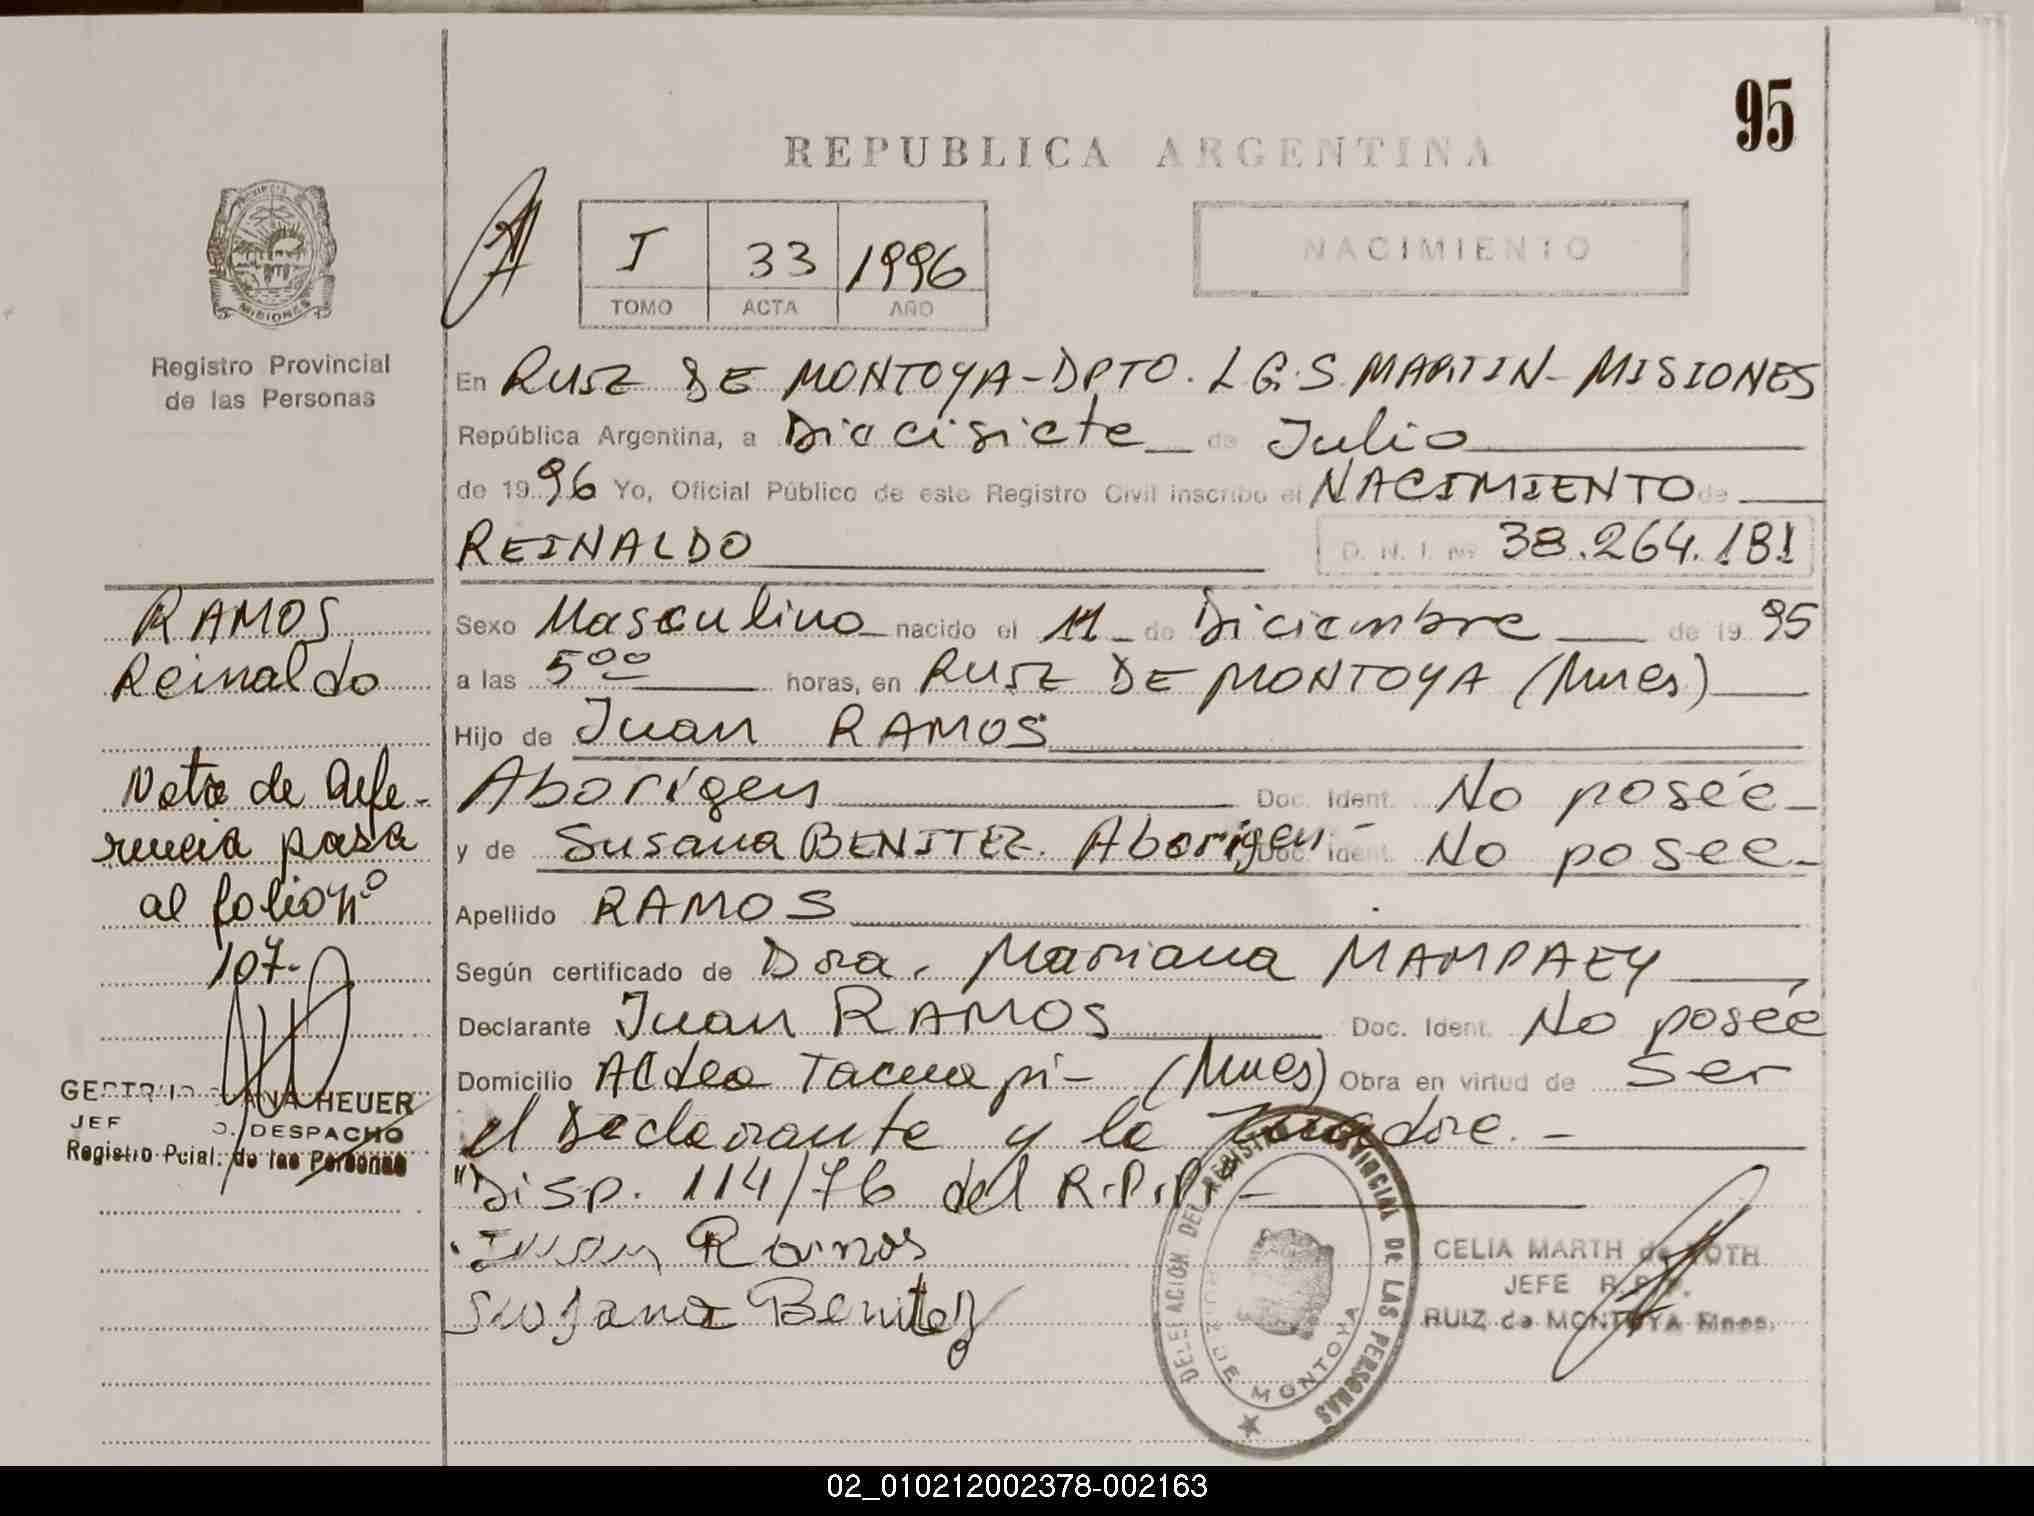 95
REPUBLICA ARGENTINA
PROVINCIA DE
MISIONES
Registro Provincial
de las Personas
I 33 1996
TOMO ACTA AÑO
NACIMIENTO
En RUIZ DE MONTOYA-DPTO. L G. S. MARTIN- MISIONES
República Argentina, a Diecisiete de Julio
de 1996 Yo, Oficial Público de este Registro Civil inscribo el NACIMIENTO de
REINALDO D. N. I. Nº 38.264.181
Sexo Masculino nacido el 11 de Diciembre de 1995
a las 5 00 horas, en RUIZ DE MONTOYA (Mnes)
Hijo de Juan RAMOS
Aborigen Doc. Ident. No posée
y de Susana BENITEZ. Aborigen Doc. Ident. No posee
Apellido RAMOS
Según certificado de Dra. Mariana MAMPAEY
Declarante Juan RAMOS Doc. Ident. No posée
Domicilio Aldea Tacuapi- (Mnes) Obra en virtud de ser
el Declarante y la madre.-
"Disp. 114/76 del R.P.P."-
Juan Ramos
Susana Benitez
RAMOS
Reinaldo
Nota de Refe-
rencia pasa
al folio nº
107-
HEUER
DESPACHO
Registro Pcial. de las Personas
DELEGACION DEL REGISTRO PROVINCIAL DE LAS PERSONAS
DE MONTOYA
CELIA MARTH de ROTH
JEFE R.P.P.
RUIZ de MONTOYA Mnes.
02_010212002378-002163